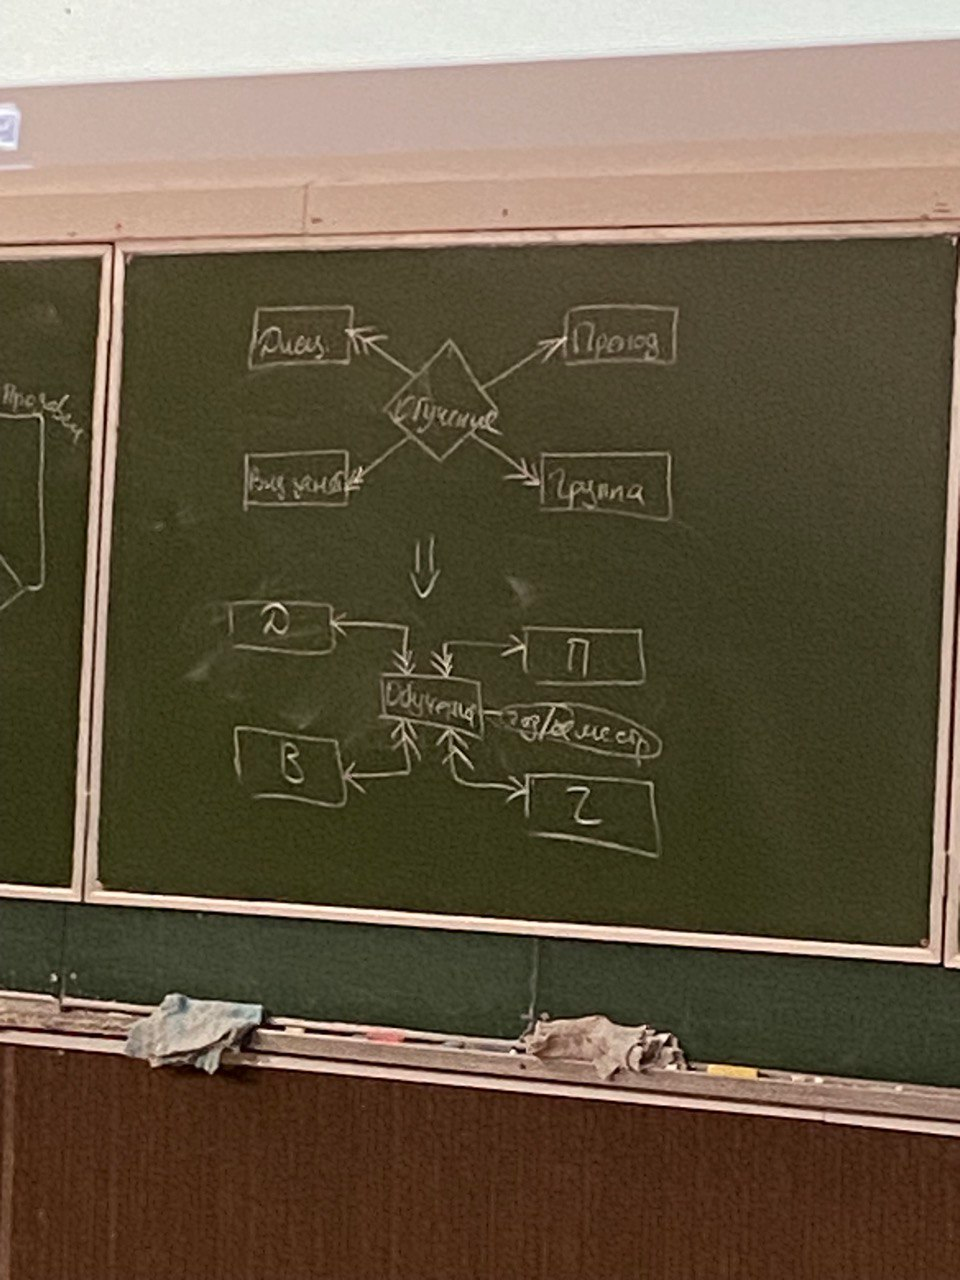 Дисц.
Препод
Обучение
Вид занят
Группа
Д
П
Обучение
год/семестр
В
Г